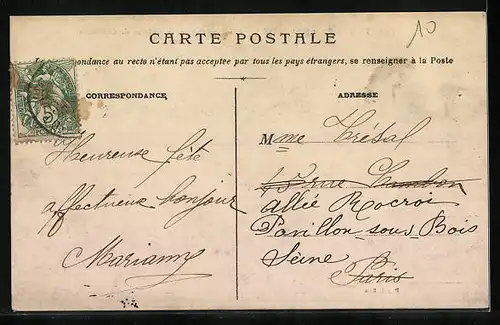 10
CARTE POSTALE
La correspondance au recto n'étant pas acceptée par tous les pays étrangers, se renseigner à la Poste
CORRESPONDANCE
Heureuse fête
affectueux bonjour
Marianne
ADRESSE
Mme Trésal
45 rue Chambon
allée Rocroi
Pavillon-sous-Bois
Seine
Paris
5c